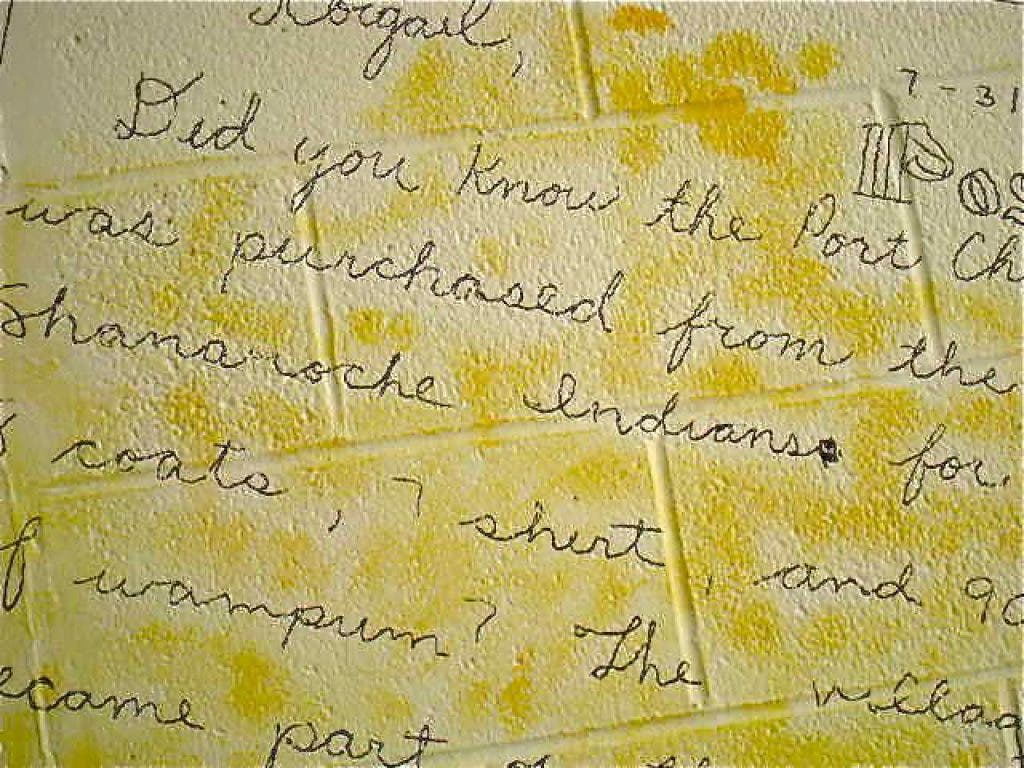 Abigail,
7-31
Did you know the Port Ch
was purchased from the
Shanaroche Indians for
8 coats, 7 shirt, and 90
of wampum? The villag
ecame part